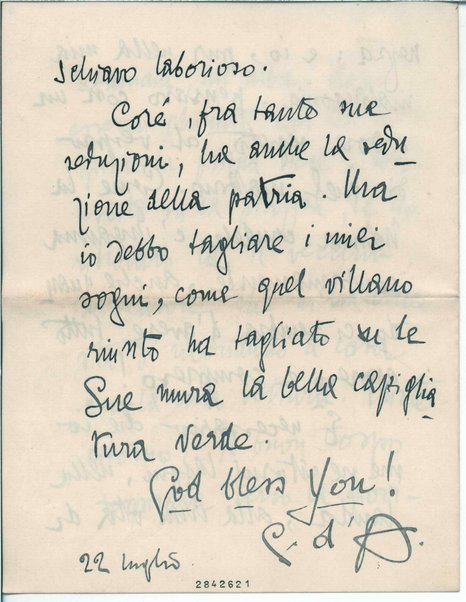 schiavo laborioso.
Così, fra tanto sue
seduzioni, ha anche la sedu-
zione della patria. Ma
io debbo tagliare i miei
sogni, come quel villano
ha tagliato su le
Sue mura la bella capiglia
tura verde.
God bless You!
G. d'A.
22 luglio
2842621